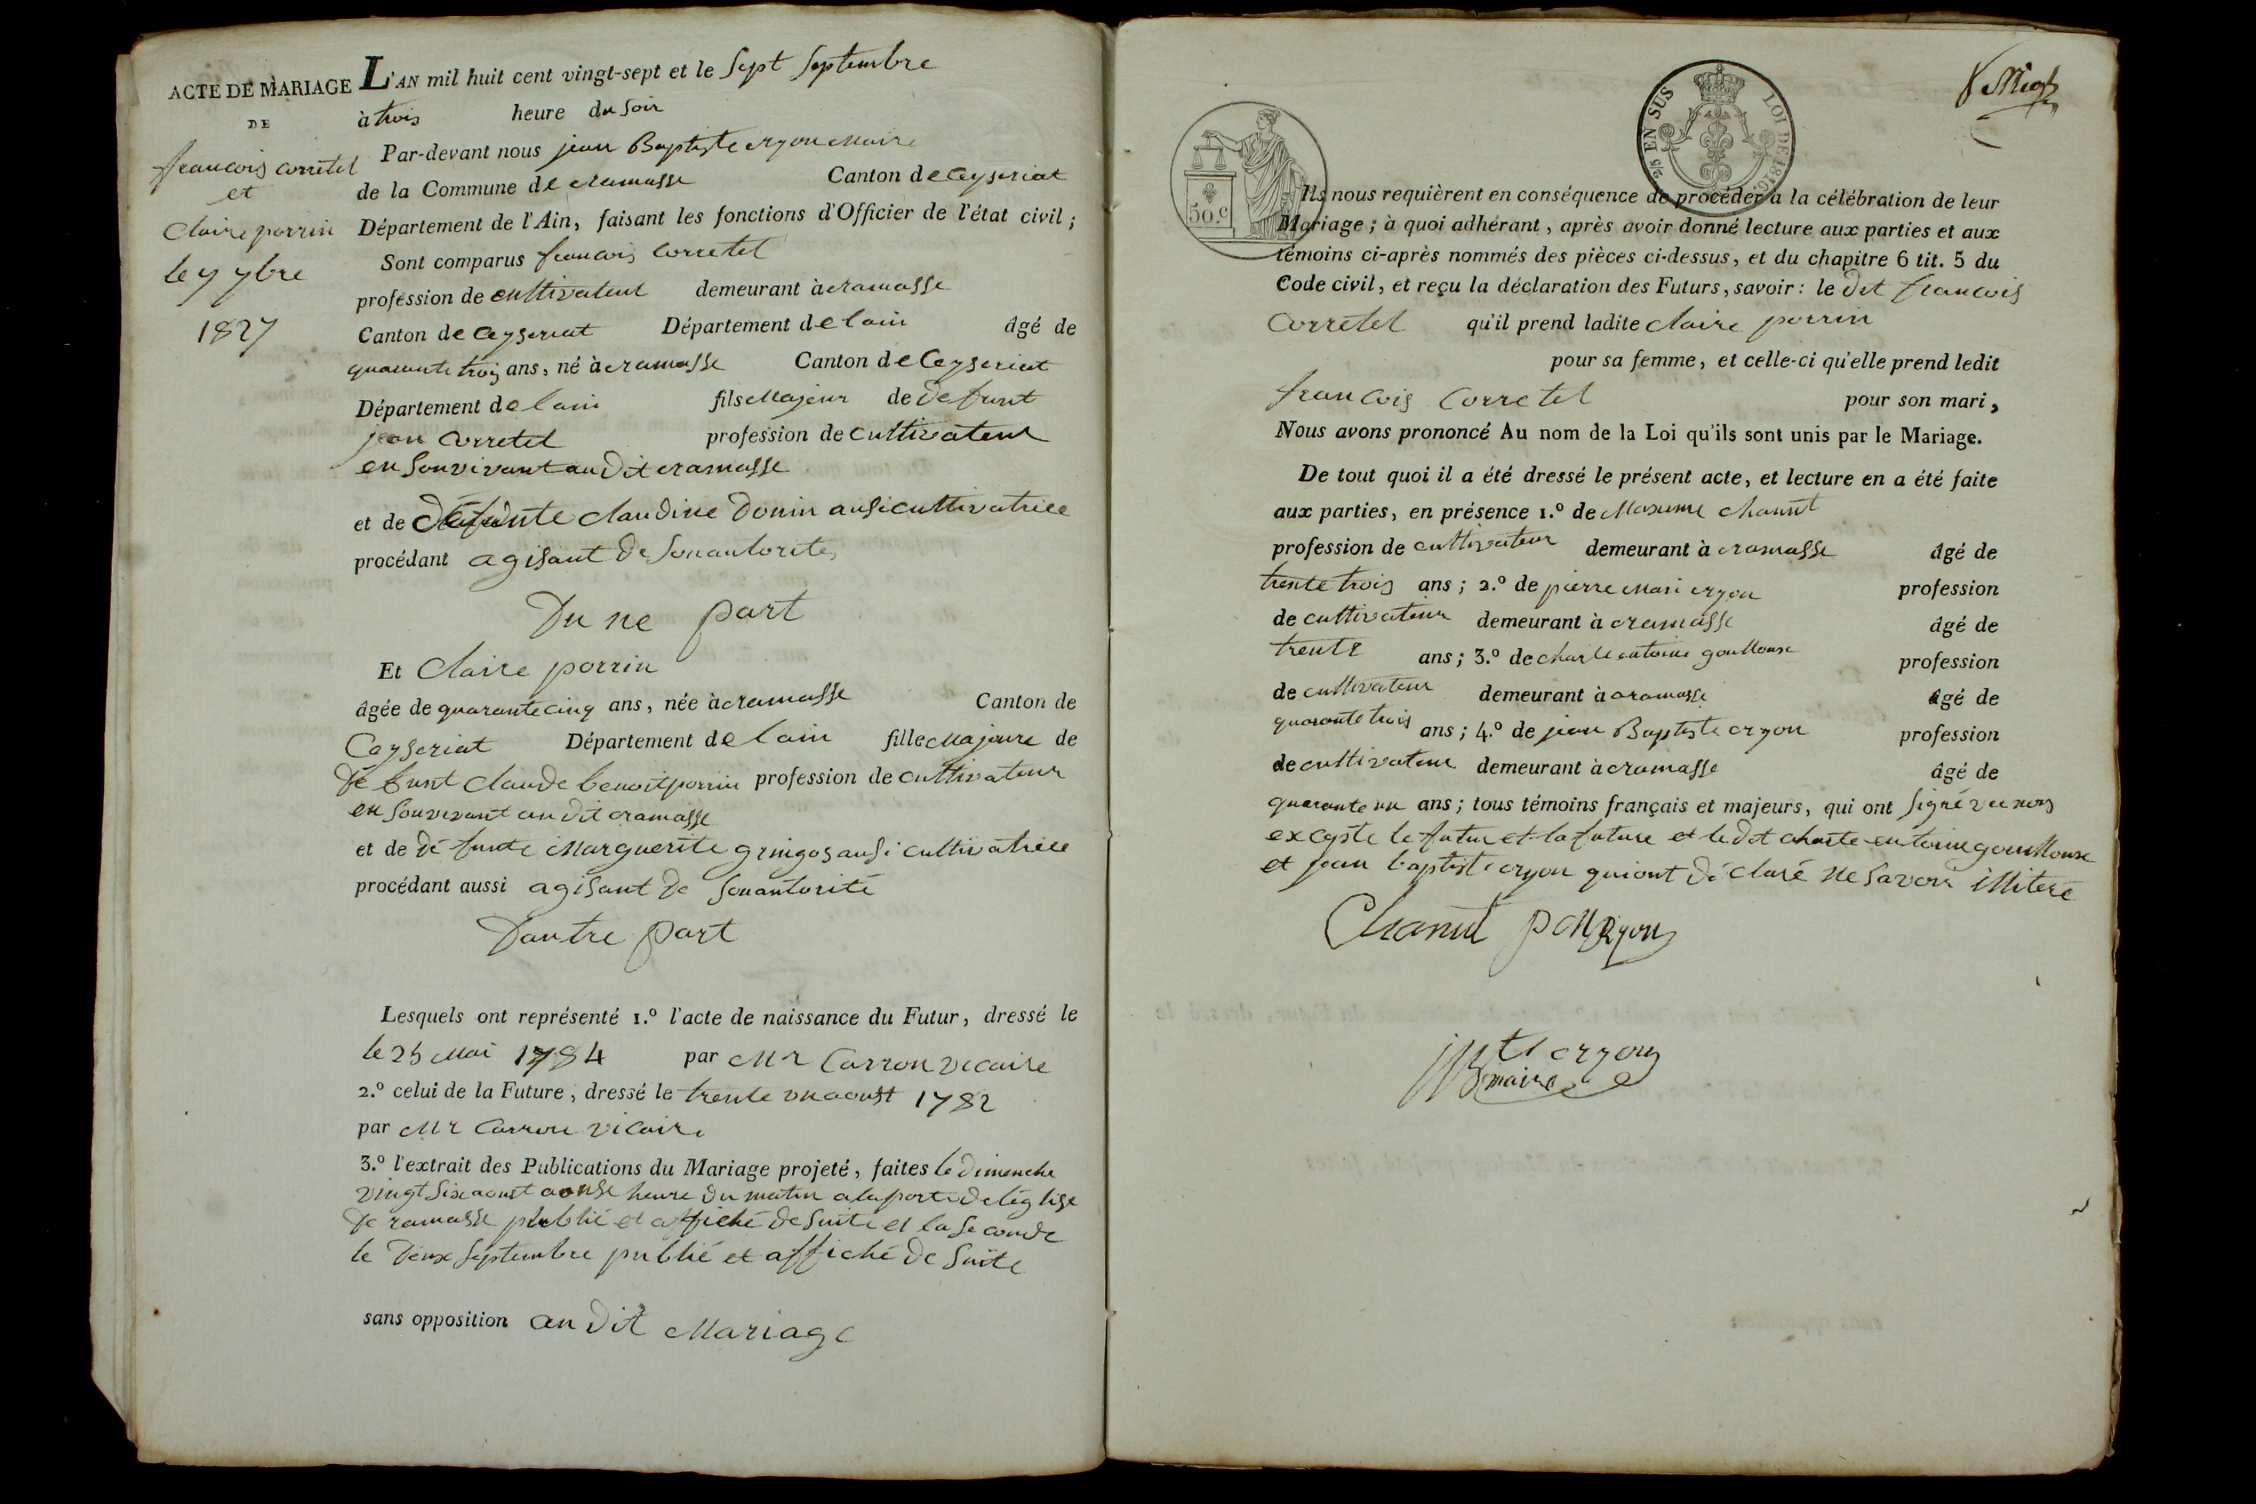 ACTE DE MARIAGE
DE
francois corretel
et
Claire perrin
le 7 7bre
1827
L'AN mil huit cent vingt-sept et le Sept Septembre
à trois heure du soir
Par-devant nous jean Baptiste eryon Maire
de la Commune de cramasse Canton de Ceyseriat
Département de l'Ain, faisant les fonctions d'Officier de l'état civil ;
Sont comparus francois corretel
profession de cultivateur demeurant à cramasse
Canton de Ceyseriat Département de lain âgé de
quarante trois ans, né à cramasse Canton de Ceyseriat
Département de lain fils Majeur de defunt
jean corretel profession de cultivateur
en Son vivant au dit cramasse
et de défunte claudine donin ausi cultivatrice
procédant agisant de Son autorite
Du ne part
Et Claire perrin
âgée de quarante cinq ans, née à cramasse Canton de
Ceyseriat Département de lain fille Majeure de
de funt claude benoit perrin profession de cultivateur
en Son vivant au dit cramasse
et de dé funte Marguerite gringoz ausi cultivatrice
procédant aussi agisant de Son autorité
Dautre part
Lesquels ont représenté 1.º l'acte de naissance du Futur, dressé le
le 25 Mai 1784 par Mr Carron vicaire
2.º celui de la Future, dressé le trente un aoust 1782
par Mr Carron vicaire
3.º l'extrait des Publications du Mariage projeté, faites le dimenche
vingt Six aoust a onse heure du matin a la porte de léglise
de ramasse publié et affiché de Suite et la Seconde
le Deux Septembre publié et affiché de Suite
sans opposition au dit Mariage
2/5 EN SUS LOI DE 1816.
50.c
Ils nous requièrent en conséquence de procéder à la célébration de leur
Mariage ; à quoi adhérant, après avoir donné lecture aux parties et aux
témoins ci-après nommés des pièces ci-dessus, et du chapitre 6 tit. 5 du
Code civil, et reçu la déclaration des Futurs, savoir : le dit francois
Corretel qu'il prend ladite claire perrin
pour sa femme, et celle-ci qu'elle prend ledit
francois corretel pour son mari,
Nous avons prononcé Au nom de la Loi qu'ils sont unis par le Mariage.
De tout quoi il a été dressé le présent acte, et lecture en a été faite
aux parties, en présence 1.º de Maxime chanut
profession de cultivateur demeurant à cramasse âgé de
trente trois ans ; 2.º de pierre Mari eryon profession
de cultivateur demeurant à cramasse âgé de
trente ans ; 3.º de charle antoine profession
de cultivateur demeurant à cramasse âgé de
quarante trois ans ; 4.º de jean Baptiste eryon profession
de cultivateur demeurant à cramasse âgé de
quarante un ans ; tous témoins français et majeurs, qui ont Signé vec nous
excepte le futur et la future et le dit charle antoine
et jean baptiste eryon qui ont déclaré ne Savoir illiteré
Chanut PM Ryon
JB te eryon
maire